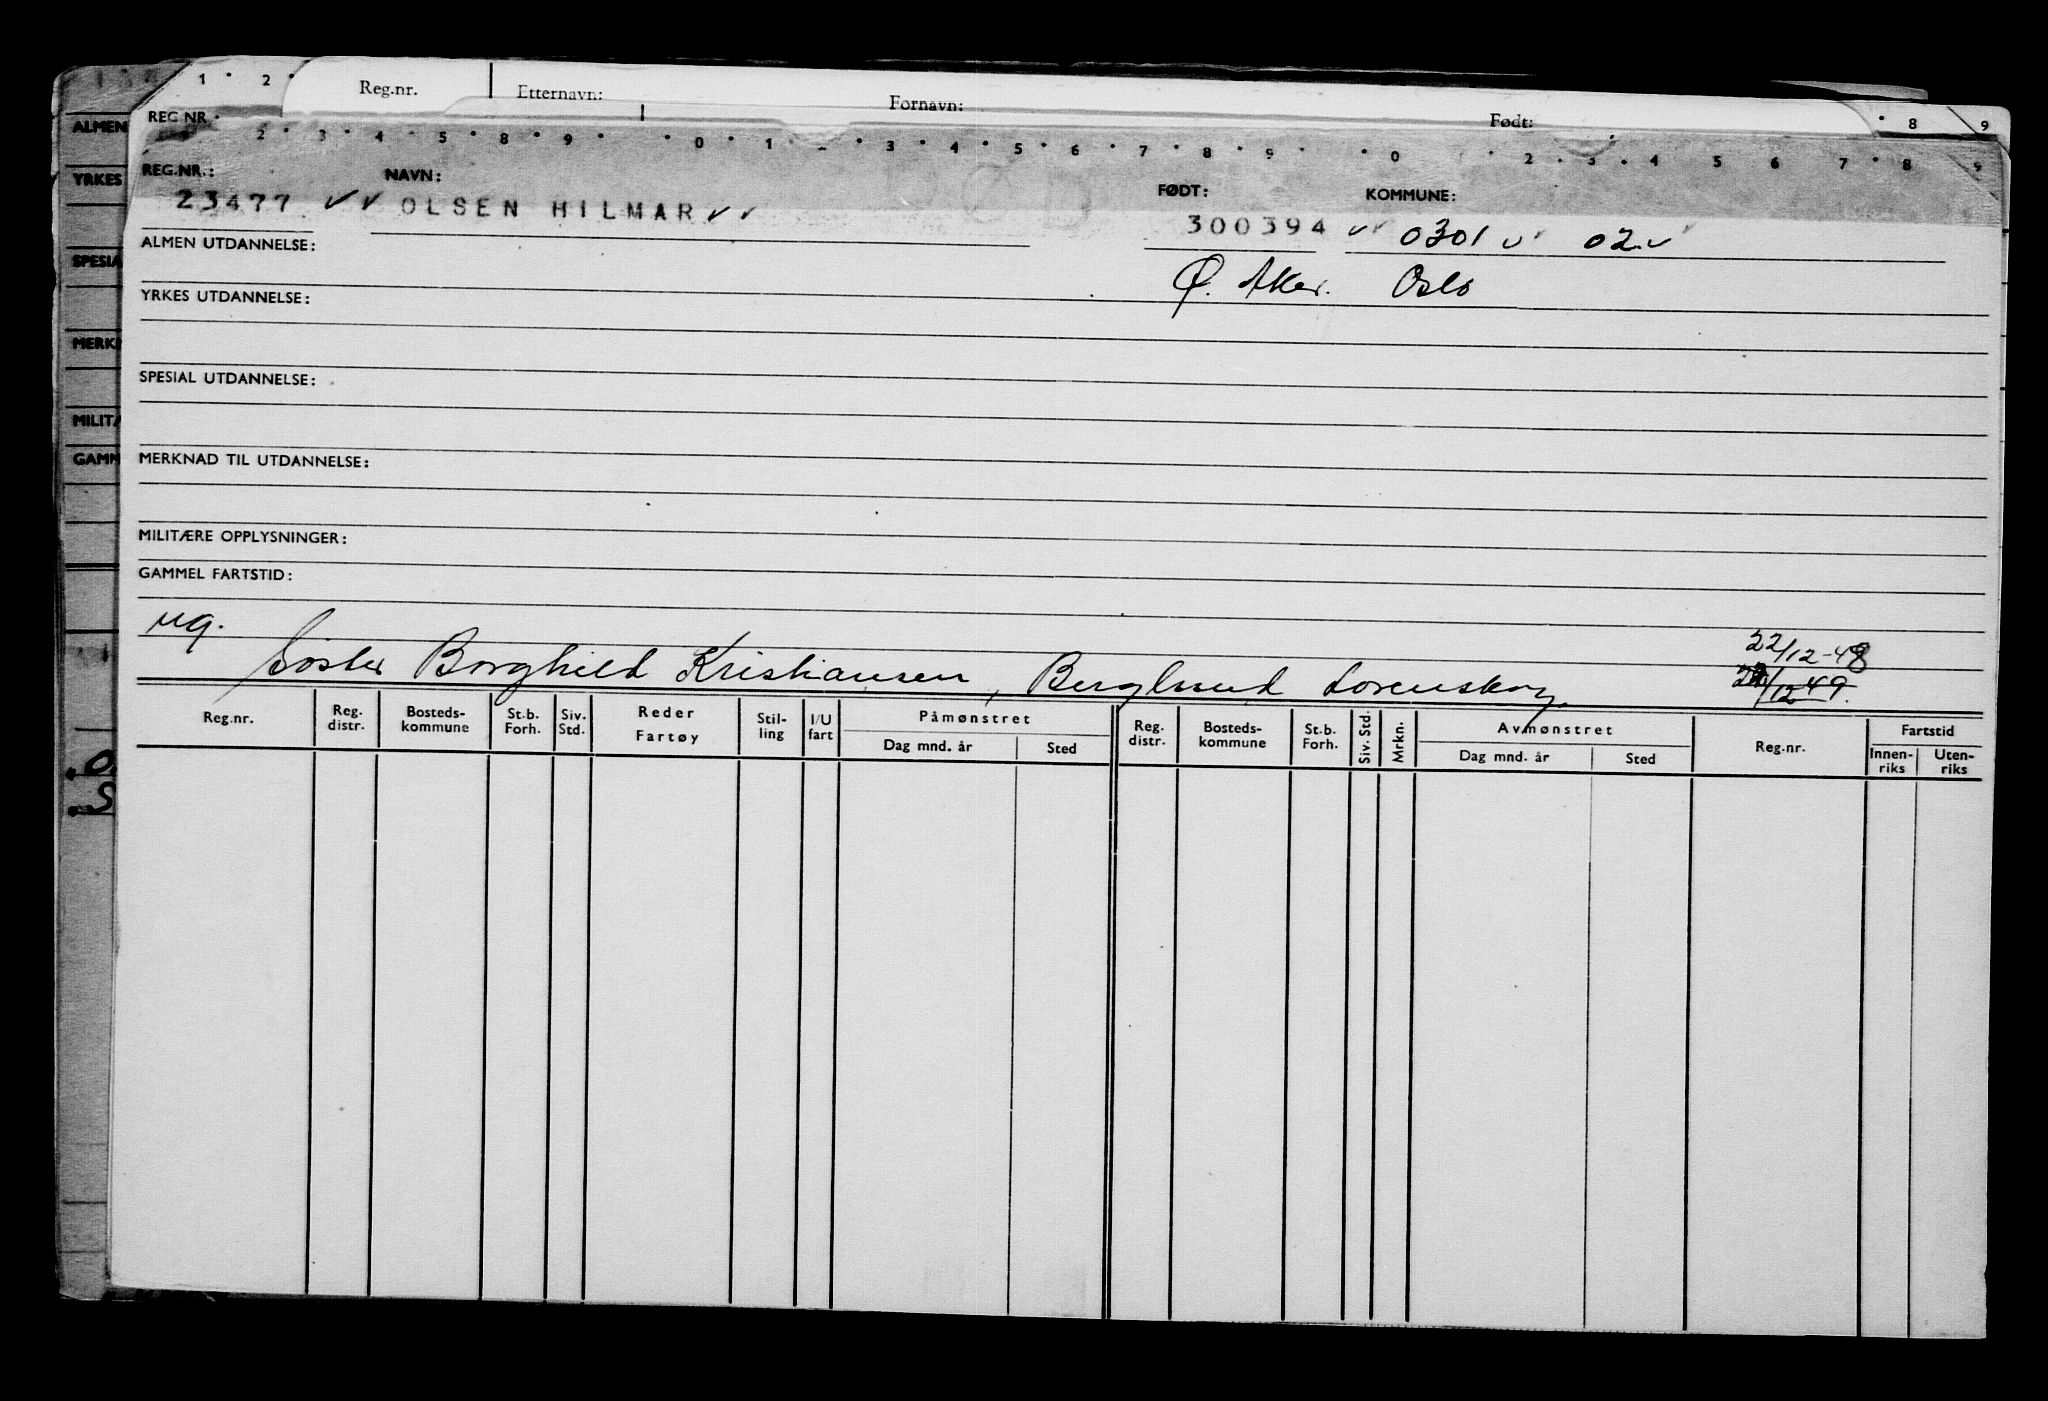 1 · 2 ·
Reg.nr. Etternavn: Fornavn: Født:
REG NR. · 8 9
2 · 3 · 4 · 5 · 8 · 9 · 0 · 1 · · 3 · 4 · 5 · 6 · 7 · 8 · 9 · 0 · 2 · 3 · 4 5 6 7 · 8 9
ALMEN
YRKES
SPESIA
MERKN
MILITÆ
GAMM
REG.NR.: NAVN: FØDT: KOMMUNE:
23477 OLSEN HILMAR 300394 0301 02
ALMEN UTDANNELSE:
Ø. Aker. Oslo
YRKES UTDANNELSE:
SPESIAL UTDANNELSE:
MERKNAD TIL UTDANNELSE:
MILITÆRE OPPLYSNINGER:
GAMMEL FARTSTID:
ug.
Søster Borghild Kristiansen, Berglund Lørenskog.
22/12-48
22/12 49.
Reg.nr. Reg. distr. Bosteds-kommune St.b. Forh. Siv. Std. Reder Fartøy Stil-ling I/U fart Påmønstret Dag mnd. år Sted Reg. distr. Bosteds-kommune St.b. Forh. Siv. Std. Mrkn. Avmønstret Dag mnd. år Sted Reg.nr. Fartstid Innen-riks Uten-riks